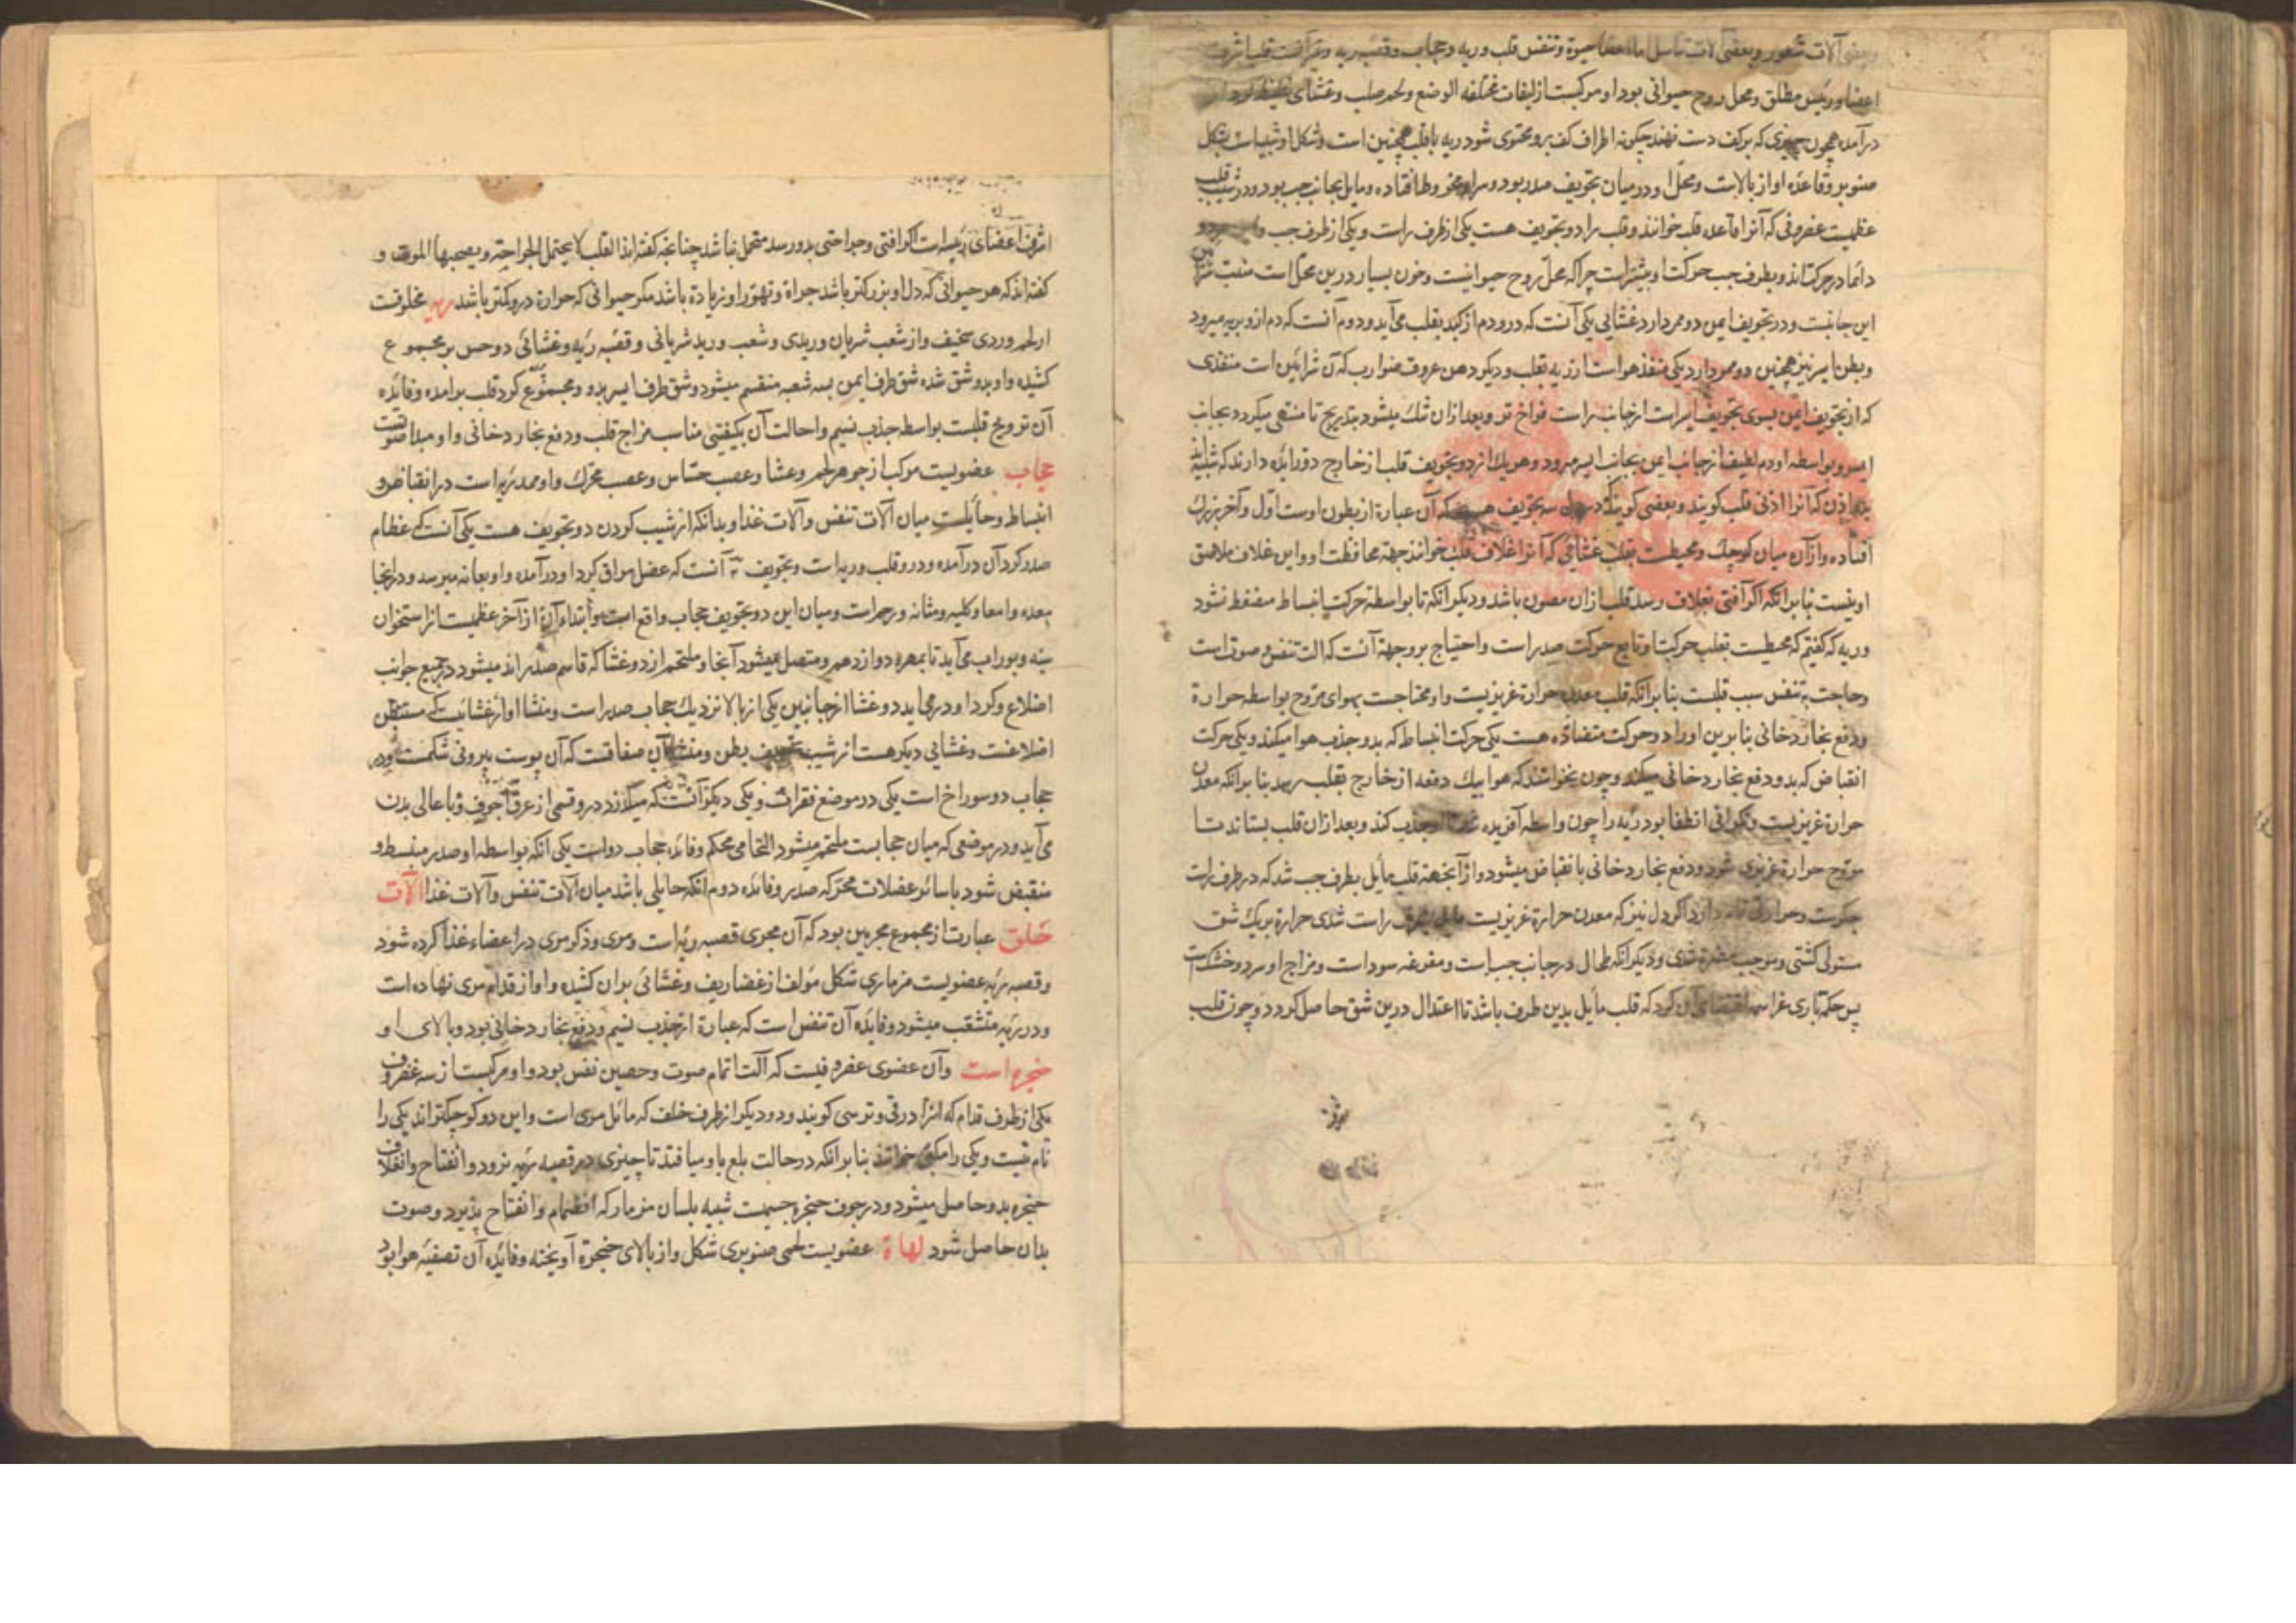 وبعضی آلات شعور وبعضی آلات تناسل اما اعضاء حیوة وتنفس قلب وریه وحجاب وقصبه ریه وغیرآنست قلب اشرف
اعضا ورئیس مطلق ومحل روح حیوانی بود او مرکبست از لیفات مختلفه الوضع ولحم صلب وغشای غلیظ کرد او
درآمده همچون چیزی که بر کف دست نهند چکونه اطراف کف برو محتوی شود ریه با قلب همچنین است وشکل او شبیه است بشکل
صنوبر وقاعده او از بالاست ومحل او در میان تجویف صدر بود وسر او مخروط افتاده ومایل بجانب چپ بود ودر شیب قلب
عظمیست غضروفی که آنرا قاعده قلب خوانند وقلب را دو تجویف هست یکی از طرف راست ویکی از طرف چپ و هر دو
دائما در حرکت اند وبطرف چپ حرکت او بیشتر است چرا که محل روح حیوانیست وخون بسیار درین محل است منبت شرائین
این جانبست ودر تجویف ایمن دو ممر دارد غشایی یکی آنست که درو دم از کبد بقلب می آید ودوم آنست که دم ازو بریه میرود
وبطن ایسر نیز همچنین دو ممر دارد یکی منفذ هواست از ریه بقلب ودیکر دهن عروق ضوارب که آن شرائین است منفذی
که از تجویف ایمن بسوی تجویف ایسر است از جانب راست فراخ تر وبعد ازان تنک میشود بتدریج تا منتهی میکردد بجانب
ایسر وبواسطه او دم لطیف از جانب ایمن بجانب ایسر میرود وهر یک از دو تجویف قلب از خارج دو زایده دارند که شبیه اند
بدو اذن که آنرا اذنی قلب کویند وبعضی کویند که درو سه تجویف هست که آن عبارة از بطون اوست اول وآخر بزرک
افتاده واز آن میان کوچک ومحیطست بقلب غشائی که آنرا غلاف قلب خوانند جهة محافظت او واین غلاف ملاصق
او نیست بنا بر انکه اکر آفتی بغلاف رسد قلب ازان مصون باشد ودیکر انکه تا بواسطه حرکت انبساط منضغط نشود
وریه که کفتیم که محیطست بقلب حرکت او تابع حرکت صدر است واحتیاج برو جهة آنست که الت تنفس وصوت است
وحاجت بتنفس سبب قلبست بنا بر انکه قلب معدن حرارة غریزیست واو محتاجست بهوای مروح بواسطه حرارة
ودفع بخار دخانی بنا برین او را دو حرکت متضاده هست یکی حرکت انبساط که بدو جذب هوا میکند ویکی حرکت
انقباض که بدو دفع بخار دخانی میکند وچون نخواستند که هوا بیک دفعه از خارج بقلب رسد بنا بر انکه معدن
حرارة غریزیست ونکرانی انطفا بود ریه را چون واسطه آفریده جذب کند وبعد ازان قلب بستاند تا
مروح حرارة غریزی شود ودفع بخار دخانی بانقباض میشود واز آنجهة قلب مایل بطرف چپ شد که در طرف راست
جکرست وحرارتی دارد اکر دل نیز که معدن حرارة غریزیست مایل بطرف راست شدی حرارة بر یک شق
مستولی کشتی وموجب شدی ودیکر انکه طحال در جانب چپ است ومفرغه سوداست ومزاج او سرد وخشک است
پس حکمة باری عز اسمه اقتضای آن کرد که قلب مایل بدین طرف باشد تا اعتدال درین شق حاصل کردد وچون قلب
اشرف اعضای رئیسه است اکر آفتی وجراحتی بدو رسد متحمل نباشد چنانچه کفته اند القلب لا یحتمل الجراحة ویصحبها الموت و
کفته اند که هر حیوانی که دل او بزرکتر باشد جراة وتهور او زیادة باشد مکر حیوانی که حرارة درو کمتر باشد ریه مخلوقست
از لحم وردی سخیف واز شعب شریان وریدی وشعب ورید شریانی وقصبه ریه وغشائی دو حس بر مجموع
کشیده واو بدو شق شده شق طرف ایمن بسه شعبه منقسم میشود وشق طرف ایسر بدو ومجموع کرد قلب برامده وفائده
آن ترویح قلبست بواسطه جذب نسیم واحالت آن بکیفیتی مناسب مزاج قلب ودفع بخار دخانی واو مبدا صوتست
حجاب عضویست مرکب از جوهر لحم وغشا وعصب حساس وعصب محرک واو ممد ریه است در انقباض و
انبساط وحایلست میان آلات تنفس وآلات غذا وبدانکه از شیب کردن دو تجویف هست یکی آنست که عظام
صدر کرد آن درآمده ودرو قلب وریه است وتجویف آنست که عضل مراق کرد او درآمده واو بعانه میرسد ودر اینجا
معده وامعا وکلیه ومثانه ورحم است ومیان این دو تجویف حجاب واقع است وابتداء آن از آخر عظمیست از استخوان
سینه وبوراب می آید تا بمهره دوازدهم ومتصل میشود آنجا وملتحم از دو غشا که قاسم صدر اند میشود در جمیع جوانب
اضلاع وکرد او در می آید دو غشا از جانبین یکی از بالا نزدیک حجاب صدر است ومنشا او از غشائیست که مستبطن
اضلاعست وغشایی دیکر هست از شیب تجویف بطن ومنشا آن صفاقست که آن پوست بیرونی شکمست ودر
حجاب دو سوراخ است یکی در موضع فقرات ویکی دیکر آنست که میکذرد درو قسمی از عرق اجوف وباعالی بدن
می آید ودر موضعی که میان حجابست ملتحم میشود التحامی محکم وفائده حجاب دو است یکی آنکه بواسطه او صدر منبسط و
منقبض شود با سائر عضلات محرکه صدر وفائده دوم آنکه حایلی باشد میان آلات تنفس وآلات غذا آلات
حلق عبارت از مجموع مجریین بود که آن مجری قصبه ریه است ومری وذکر مری در اعضاء غذا کرده شود
وقصبه ریه عضویست مزماری شکل مؤلف از غضاریف وغشائی بران کشیده واو از قدام مری نهاده است
ودر ریه متشعب میشود وفایده آن تنفس است که عبارة از جذب نسیم ودفع بخار دخانی بود وبالای او
حنجره است وآن عضوی غضروفیست که آلت اتمام صوت وحصین نفس بود واو مرکبست از سه غضروف
یکی از طرف قدام که انرا درقی وترسی کویند ودو دیکر از طرف خلف که مائل مری است واین دو کوچکتراند یکی را
نام نیست ویکی را مکبی خوانند بنا بر انکه در حالت بلع باو میافتد تا چیزی در قصبه ریه نرود وانفتاح وانغلاق
حنجره بدو حاصل میشود ودر جوف حنجره جسمیست شبیه بلسان مزمار که انضمام وانفتاح پذیرد وصوت
بدان حاصل شود لهاة عضویست لحمی صنوبری شکل واز بالای حنجره آویخته وفایده آن تصفیه هوا بود